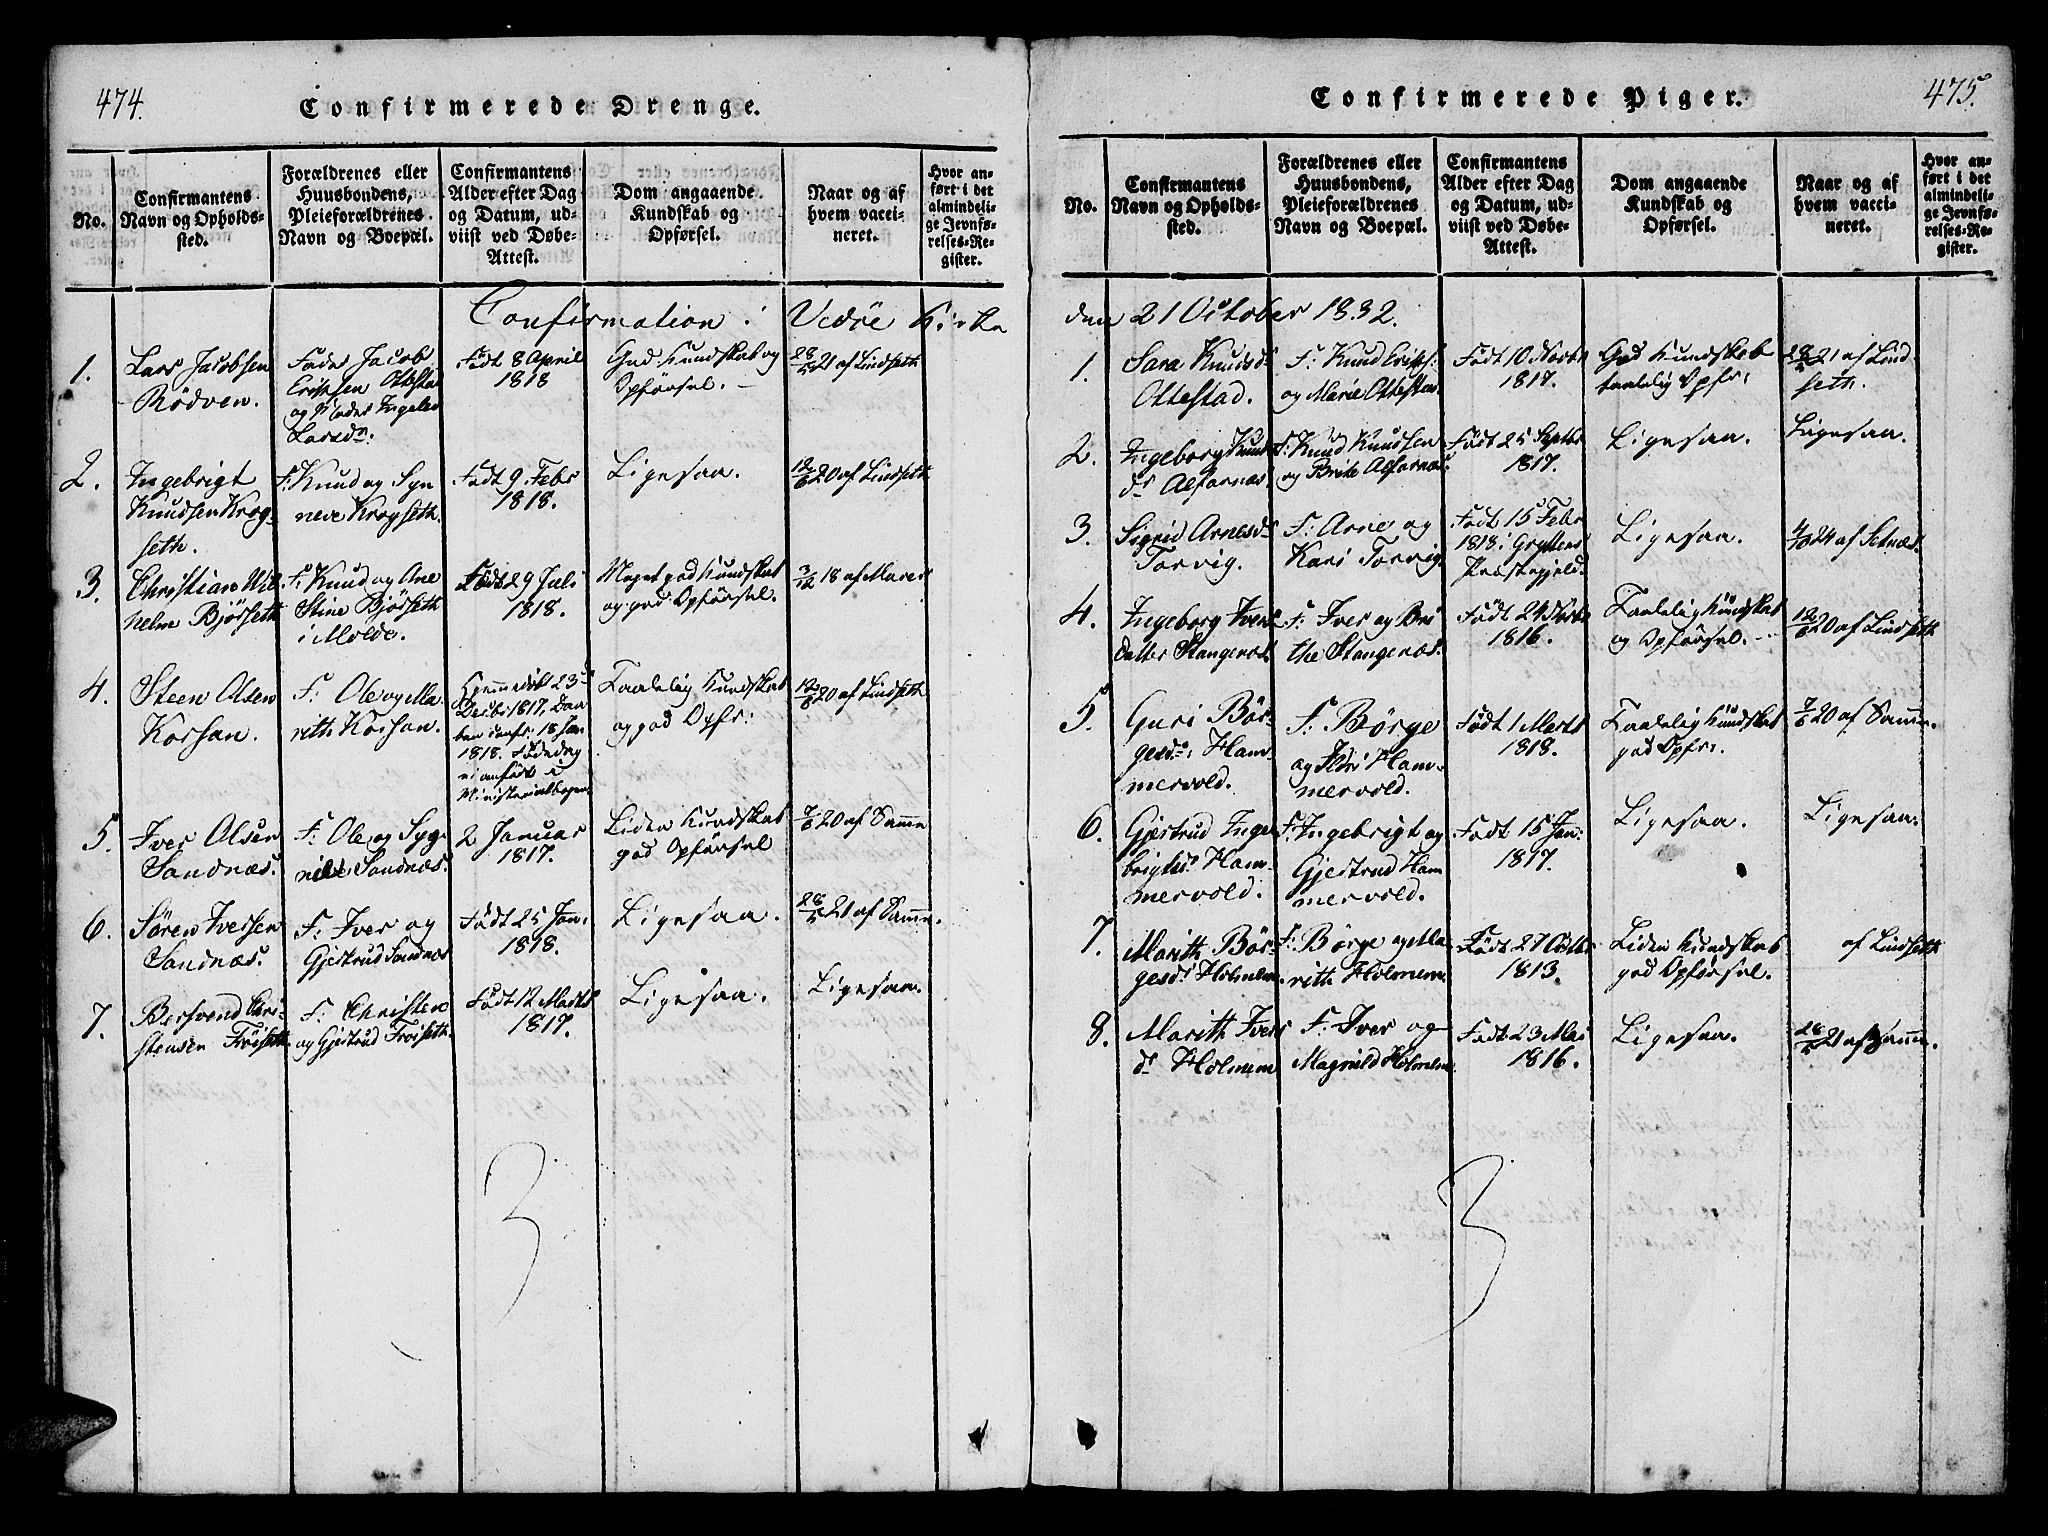 474.
Confirmerede Drenge.
No.
Confirmantens
Navn og Opholds-
sted.
Forældrenes eller
Huusbondens,
Pleieforældrenes
Navn og Boepæl.
Confirmantens
Alder efter Dag
og Datum, ud-
viist ved Døbe-
Attest.
Dom angaaende
Kundskab og
Opførsel.
Naar og af
hvem vacci-
neret.
Hvor an-
ført i det
almindeli-
ge Jevnfø-
relses-Re-
gister.
Confirmation i Vedöe Kirke
1.
Lars Jacobsen
Rödven.
Fader Jacob
Erichsen Ottestad
og Moder Ingeleb
Larsdr:
Födt 8 April
1818
God Kundskab og
Opförsel. -
28/5 21 af Lindseth
2.
Ingebrigt
Knudsen Krog-
seth.
F: Knud og Syn
neve Krogseth.
Födt 9 Febr
1818.
Ligesaa.
12/6 20 af Lindseth
3.
Christian Wil
helm Bjørseth
F: Knud og Ane
Stine Bjørseth
i Molde.
Födt 29 Juli
1818.
Meget god Kundskab
og god Opförsel.
3/12 18 af
4.
Steen Olsen
Korsan.
F: Ole og Ma
rith Korsan.
Hjemmedöbt 23d
Decbr 1817, Daa
ben confr. 18 Jan
1818. Födedag
ei anfört i
Ministerialbogen
Taalelig Kundskab
og god Opfr:
12/6 20 af Lindseth
5.
Iver Olsen
Sandnæs.
F: Ole og Syg
Sandnæs.
2 Januar
1817.
Liden Kundskab
god Opförsel
7/6 20 af Samme
6.
Sören Iversen
Sandnæs.
F: Iver og
Gjertrud Sandnæs
Födt 25 Jan:
1818.
Ligesaa.
28/5 21 af Samme.
7.
Bersvend Chri-
stensen Fröiseth.
F: Christen
og Gjertrud Fröiseth.
Födt 12 Marts
1817.
Ligesaa.
Ligesaa.
3
475.
Confirmerede Piger.
No.
Confirmantens
Navn og Opholds-
sted.
Forældrenes eller
Huusbondens,
Pleieforældrenes
Navn og Boepæl.
Confirmantens
Alder efter Dag
og Datum, ud-
viist ved Døbe-
Attest.
Dom angaaende
Kundskab og
Opførsel.
Naar og af
hvem vacci-
neret.
Hvor an-
ført i det
almindeli-
ge Jevnfø-
relses-Re-
gister.
den 21 October 1832.
1.
Sara Knudsdr
Ottestad.
F: Knud Erichs:
og Marie Ottestad.
Födt 10 Novbr
1817.
God Kundskab
taalelig Opfr:
28/5 21 af Lind
seth.
2.
Ingeborg Knuds
dr Alfarnæs.
F: Knud Knudsen
og Brite Alfarnæs.
Födt 25 Septbr
1817.
Ligesaa.
Ligesaa.
3.
Sigrid Arnesdr
Torvig.
F: Arne og
Kari Torvig.
Födt 15 Febr
1818 i Gryttens
Præstegjeld.
Ligesaa.
4/10 24 af Setnæs.
4.
Ingeborg Ivers
datter Stangenæs.
F: Iver og Bri
the Stangenæs.
Födt 24 Novbr
1816.
Taalelig Kundskab
og Opförsel. --
12/6 20 af Lindseth
5.
Guri Bör-
gesdr: Ham-
mervold.
F: Börge
og Ildri Ham-
mervold.
Födt 1 Marts
1818.
Taalelig Kundskab
god Opfr:
7/6 20 af Samme.
6.
Gjertrud Inge
brigtsdr Ham-
mervold.
F: Ingebrigt og
Gjertrud Ham
mervold.
Födt 15 Jan:
1817.
Ligesaa.
Ligesaa.
7.
Marith Bör-
gesdr Holmem.
F: Börge og Ma
rith Holmem.
Födt 27 Octbr
1813.
Liden Kundskab
god Opförsel.
af Lindseth
8.
Marith Ivers
dr Holmem
F: Iver og
Magnild Holmem
Födt 23 Mai
1816.
Ligesaa.
28/5 21 af Samme.
3